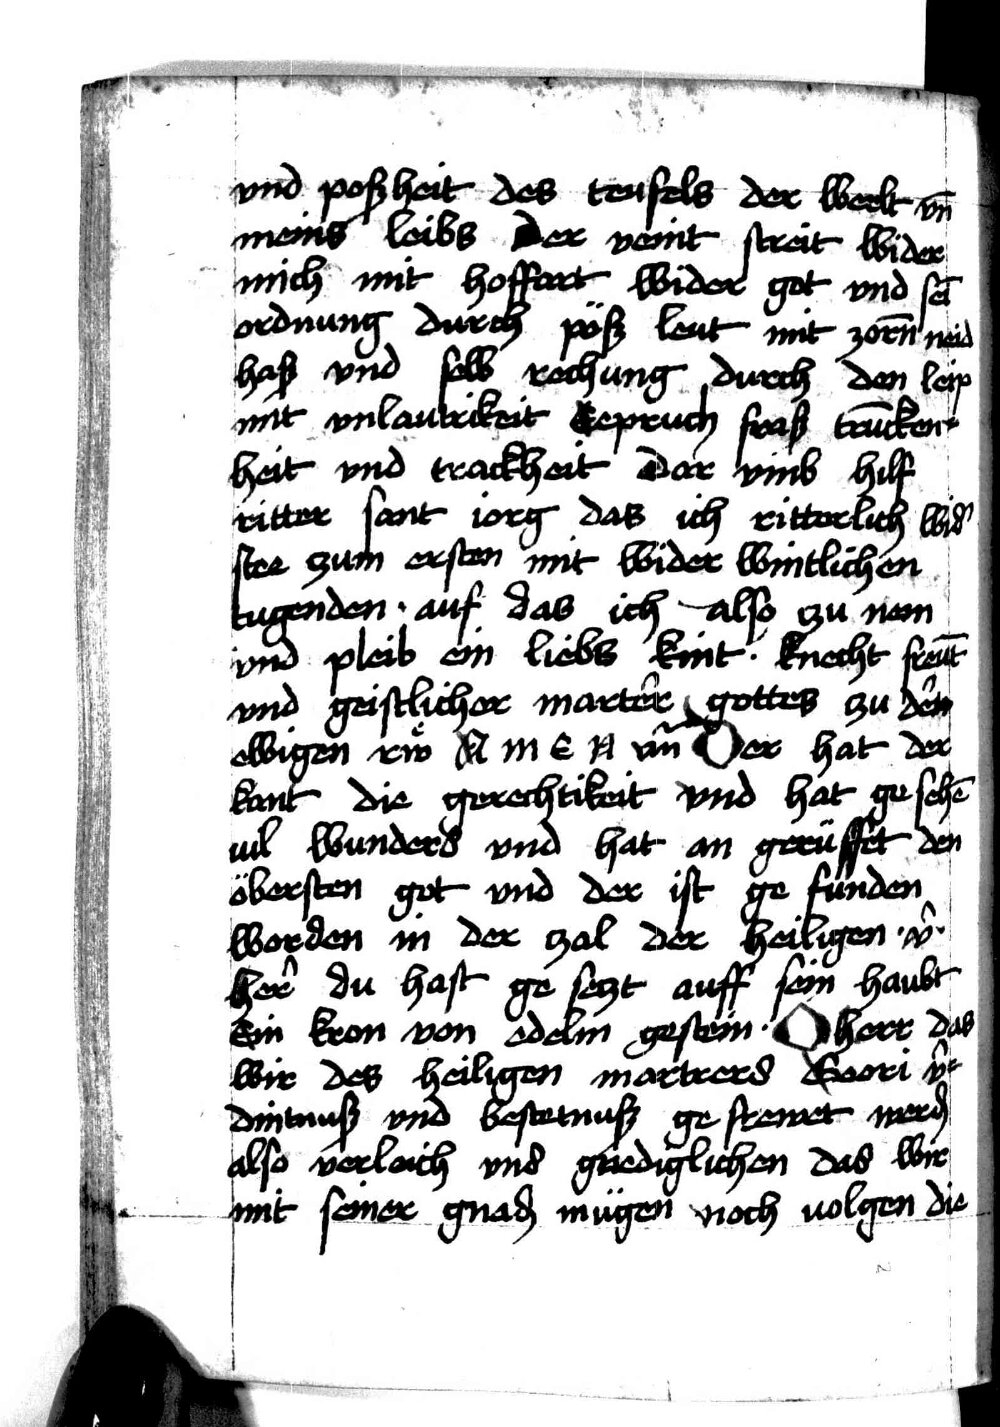 vnd poßheit des teufels der werlt vn̄
meins leibs Der veint streit wider
mich mit hoffart wider got vnd sei̅
ordnung durch pöß leut mit zorn̄ neid
haß vnd selb rechung durch den leip
mit vnlautrikeit Eepruch fraß tru̅cken-
heit vnd trackheit Dar vmb hilf
ritter sant iorg das ich ritterlich wid'
stee zum ersten mit wider wintlichen
tugenden · auf das ich also zu nem
vnd pleib ein liebs kint · knecht freu̅t
vnd geistlicher martrer gottes zu den
ewigen rw A M E N Der hat der
kant die gerechtikeit vnd hat ge sehe̅
uil wunders vnd hat an gerüffet den
öbersten got vnd der ist ge funden
worden in der zal der heiligen · v̂ ·
her' du hast ge setzt auff sein haubt
Ein kron von edelm gestein · O herr das
wir des heiligen martrers Geori v'-
dintnuß vnd bestetnuß ge frewet werd
also verleich vns gnediglichen das wir
mit seiner gnad mügen noch uolgen die